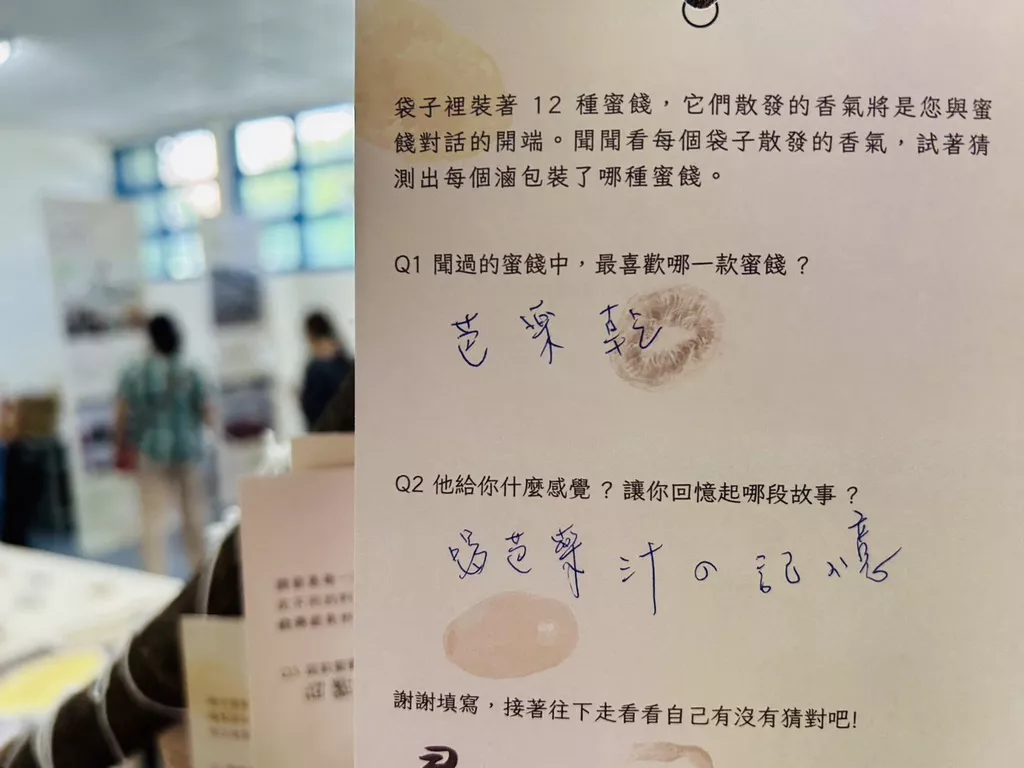 袋子裡裝著 12 種蜜餞，它們散發的香氣將是您與蜜
餞對話的開端。聞聞看每個袋子散發的香氣，試著猜
測出每個滷包裝了哪種蜜餞。
Q1 聞過的蜜餞中，最喜歡哪一款蜜餞？
芭樂乾
Q2 他給你什麼感覺？讓你回憶起哪段故事？
喝芭樂汁の記憶
謝謝填寫，接著往下走看看自己有沒有猜對吧!